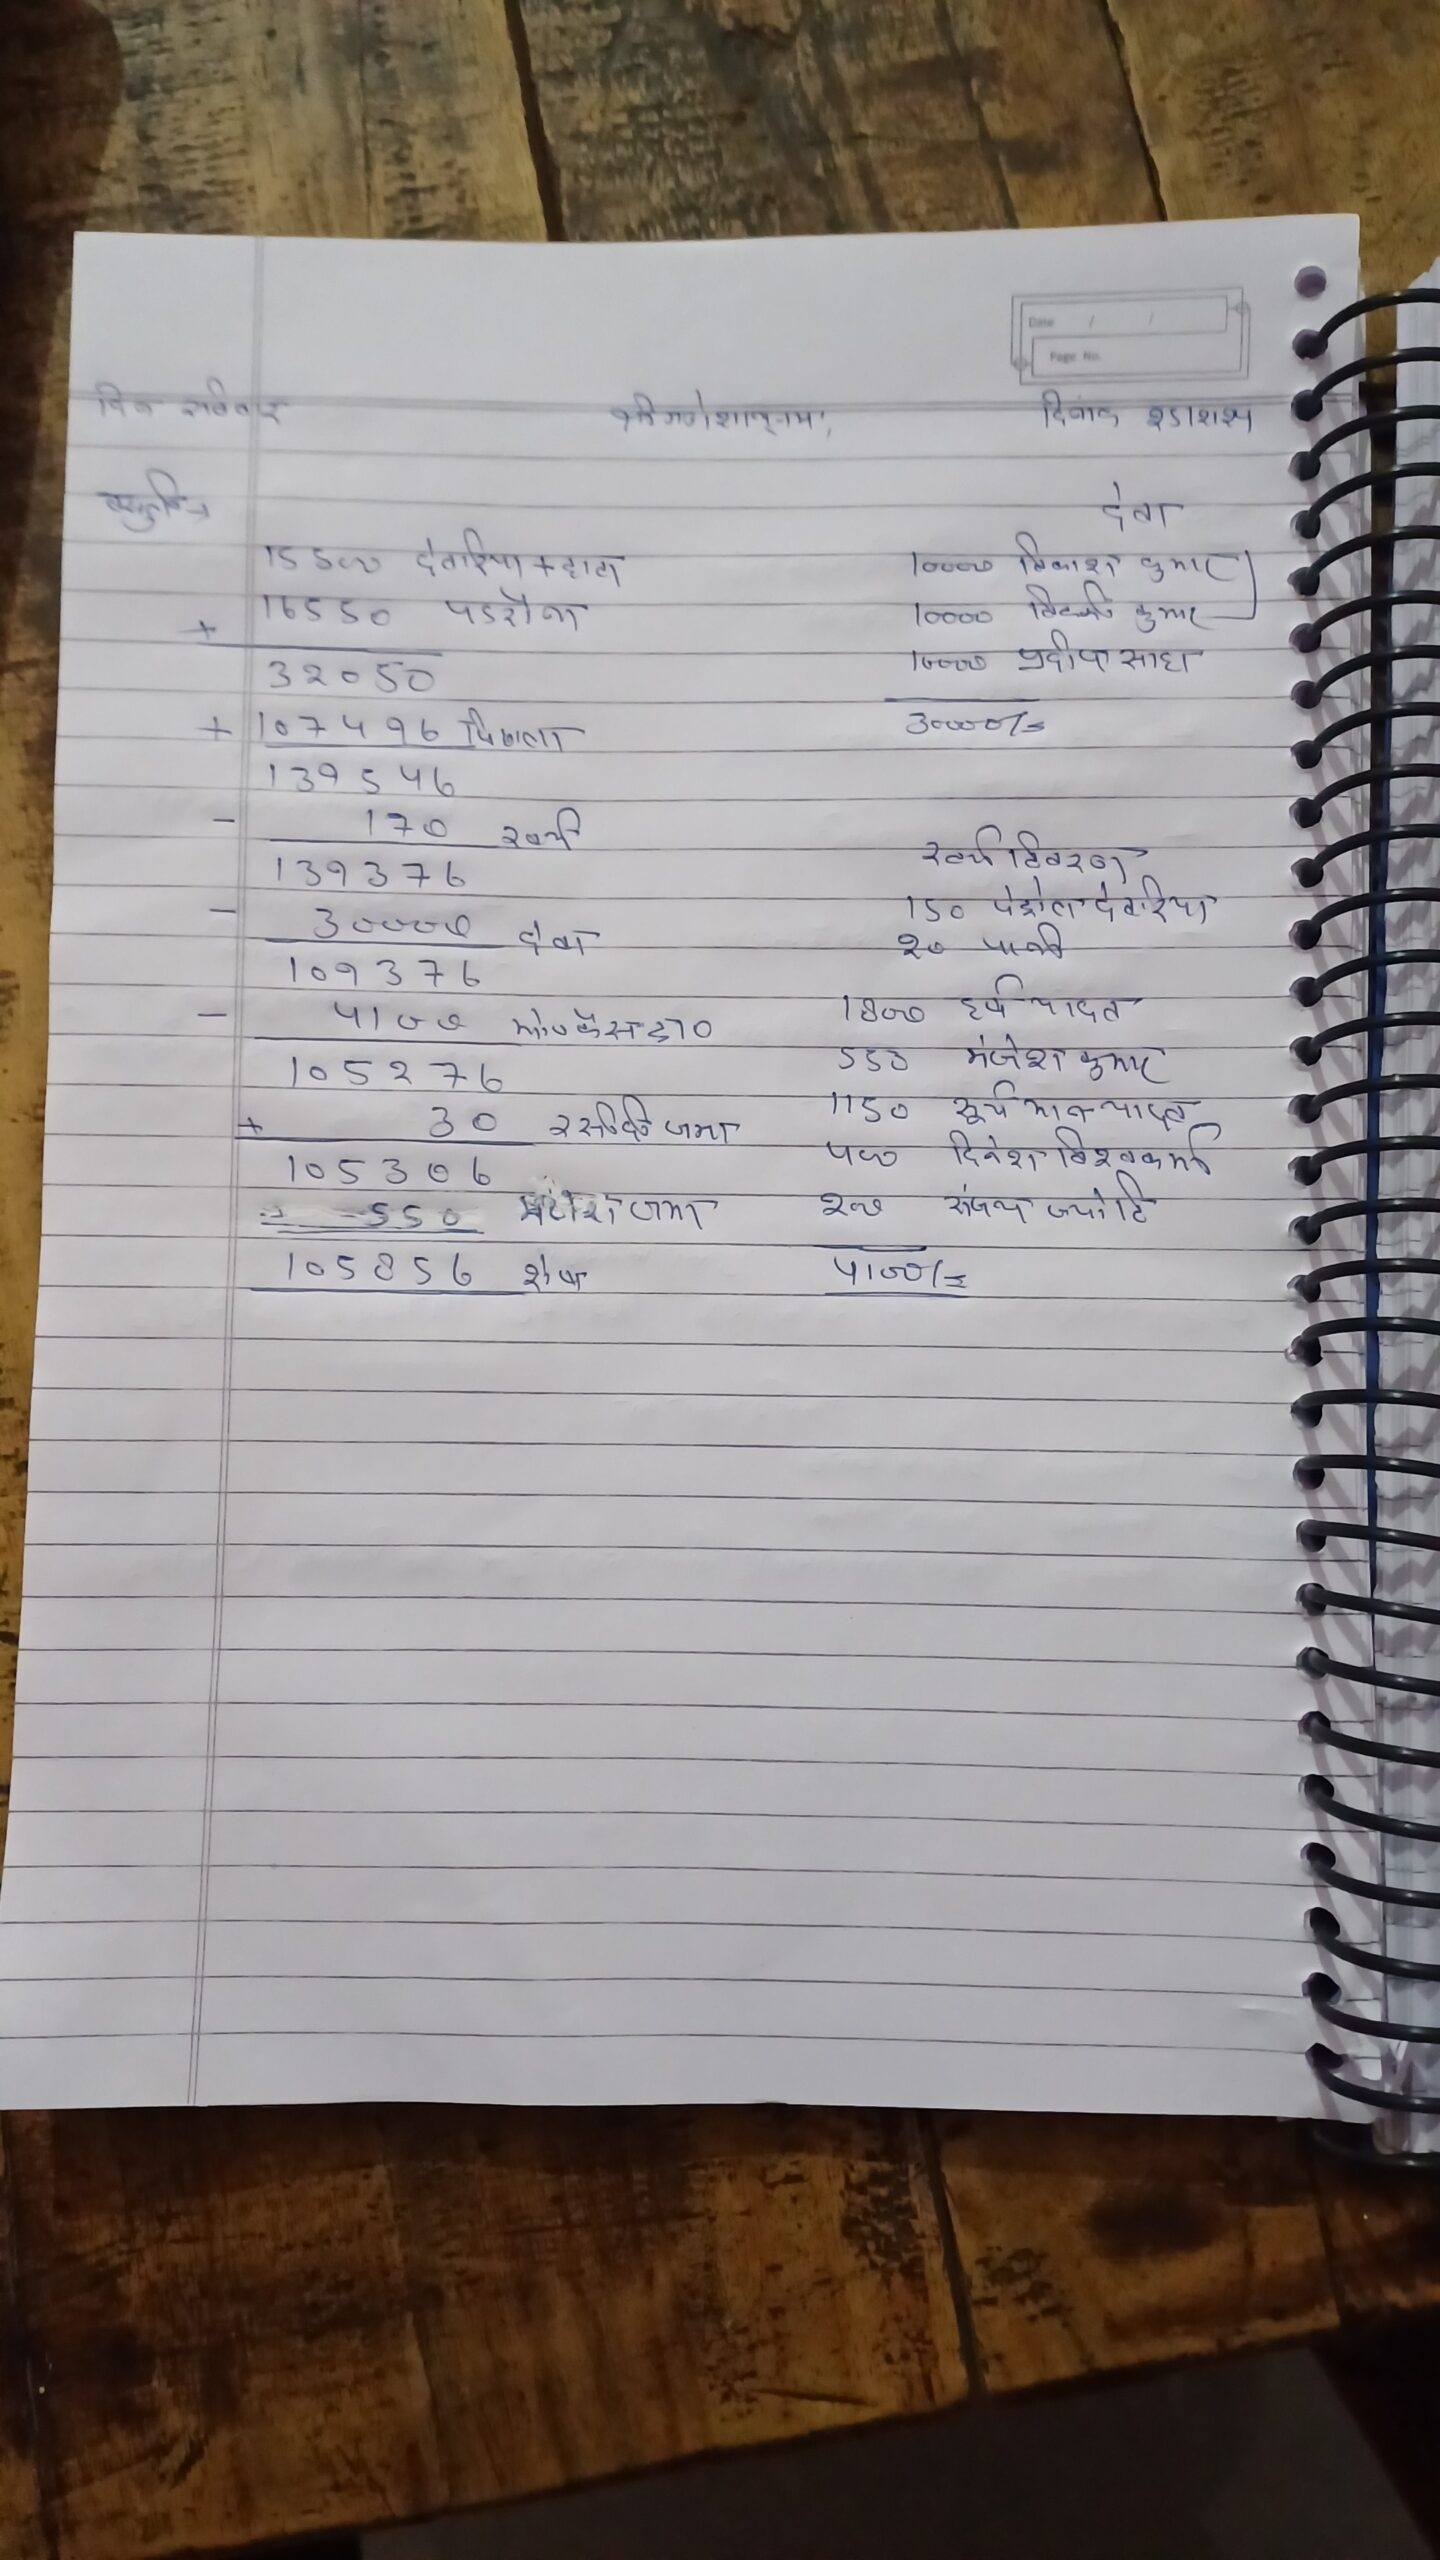 Date / /
Page No.
दिन रविवार श्री गणेशाय नमः दिनांक
वसुली→ देना
15500 देवरिया + हाटा 10000 विकाश कुमार
+ 16550 पडरौना 10000 विक्की कुमार
32050 10000 प्रदीप साहा
+ 107496 पिछला 30000/=
139546
- 170 खर्च
139376 खर्च विवरण
- 30000 देना 150 पेट्रोल देवरिया
109376 20 पानी
- 4100 1800 हर्ष यादव
105276 550 मंजेश कुमार
+ 30 जमा 1150 सूर्यभान यादव
105306 400 दिनेश विश्वकर्मा
550 जमा 200 संजय ज्योति
105856 शेष 4100/=